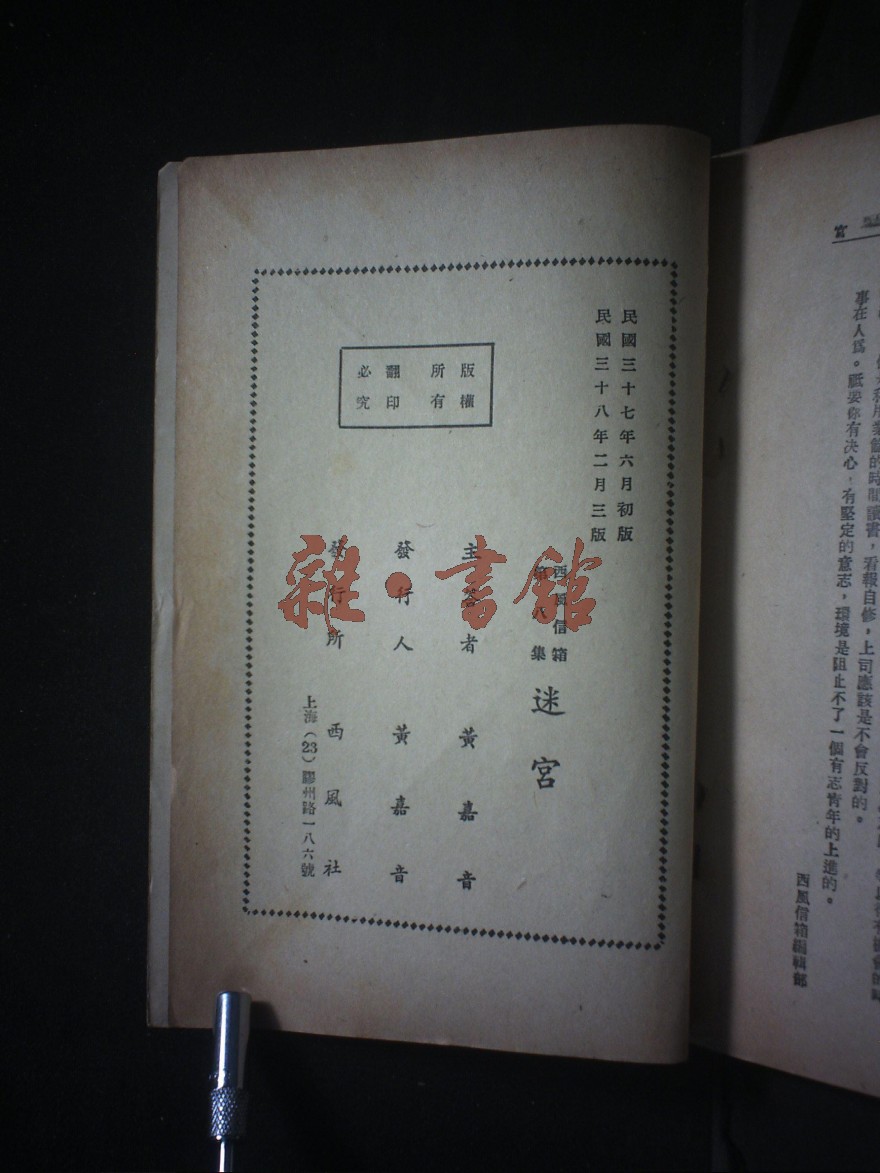 民國三十七年六月初版
民國三十八年二月三版
西風信箱
第八集
迷宮
主答者 黃嘉音
發行人 黃嘉音
發行所 西風社
上海(23)膠州路一八六號
版權所有
翻印必究
雜·書館
宮
看報自修,上司應該是不會反對的。
事在人爲。祇要你有决心,有堅定的意志,環境是阻止不了一個有志青年的上進的。
西風信箱編輯部